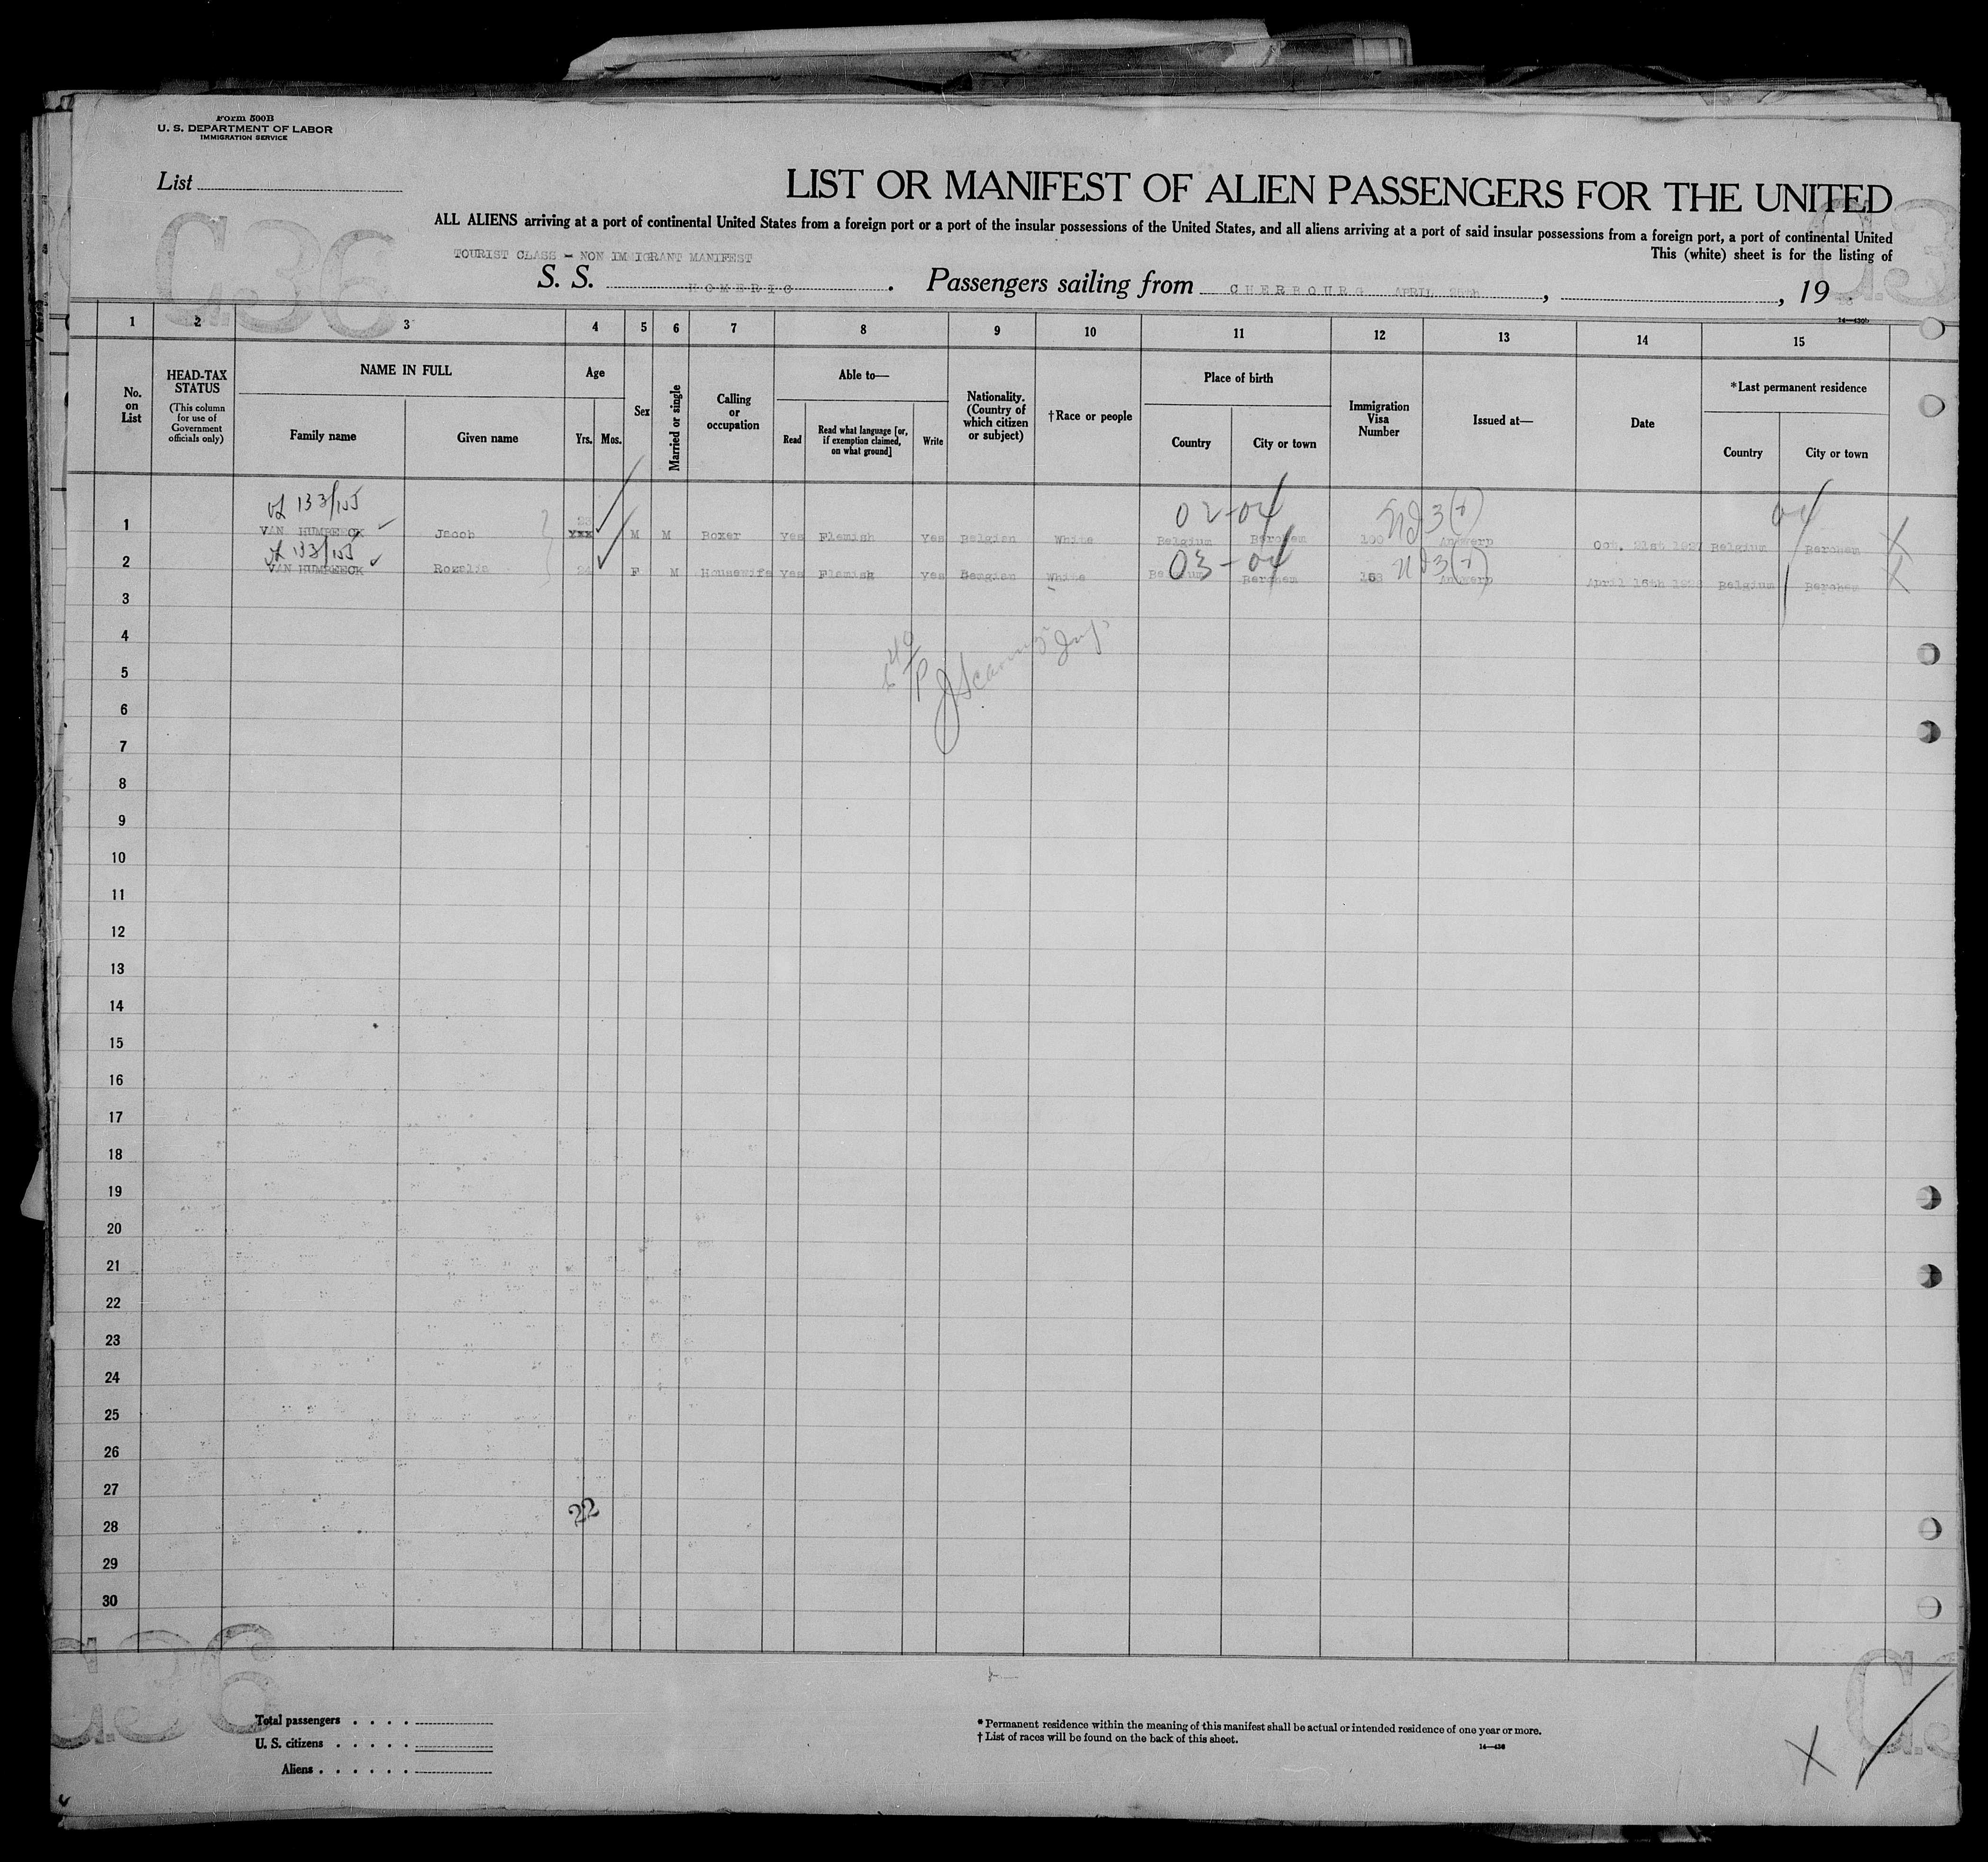 Form 500B
U. S. DEPARTMENT OF LABOR
IMMIGRATION SERVICE
List
LIST OR MANIFEST OF ALIEN PASSENGERS FOR THE UNITED
ALL ALIENS arriving at a port of continental United States from a foreign port or a port of the insular possessions of the United States, and all aliens arriving at a port of said insular possessions from a foreign port, a port of continental United
This (white) sheet is for the listing of
TOURIST CLASS - NON IMMIGRANT MANIFEST
S. S. HOMERIC. Passengers sailing from CHERBOURG APRIL 25th, , 19
1 2 3 4 5 6 7 8 9 10 11 12 13 14 15
No. on List
HEAD-TAX STATUS (This column for use of Government officials only)
NAME IN FULL
Family name Given name
Age
Yrs. Mos.
Sex
Married or single
Calling or occupation
Able to—
Read Read what language [or, if exemption claimed, on what ground] Write
Nationality. (Country of which citizen or subject)
†Race or people
Place of birth
Country City or town
Immigration Visa Number
Issued at—
Date
*Last permanent residence
Country City or town
133/155 02-04 3(2) 04
1 VAN HUMBEECK Jacob M M Boxer Yes Flemish Yes Belgian White Belgium Berchem 100 Antwerp Oct. 21st 1927 Belgium Berchem
133/155 03-04 3(2)
2 VAN HUMBEECK Rozalia 24 F M Housewife Yes Flemish Yes Belgian White Belgium Berchem 158 Antwerp April 16th 1928 Belgium Berchem
3
4
5
6
7
8
9
10
11
12
13
14
15
16
17
18
19
20
21
22
23
24
25
26
27
22
28
29
30
Total passengers . . . .
U. S. citizens . . . . .
Aliens . . . . . .
* Permanent residence within the meaning of this manifest shall be actual or intended residence of one year or more.
† List of races will be found on the back of this sheet.
14—430